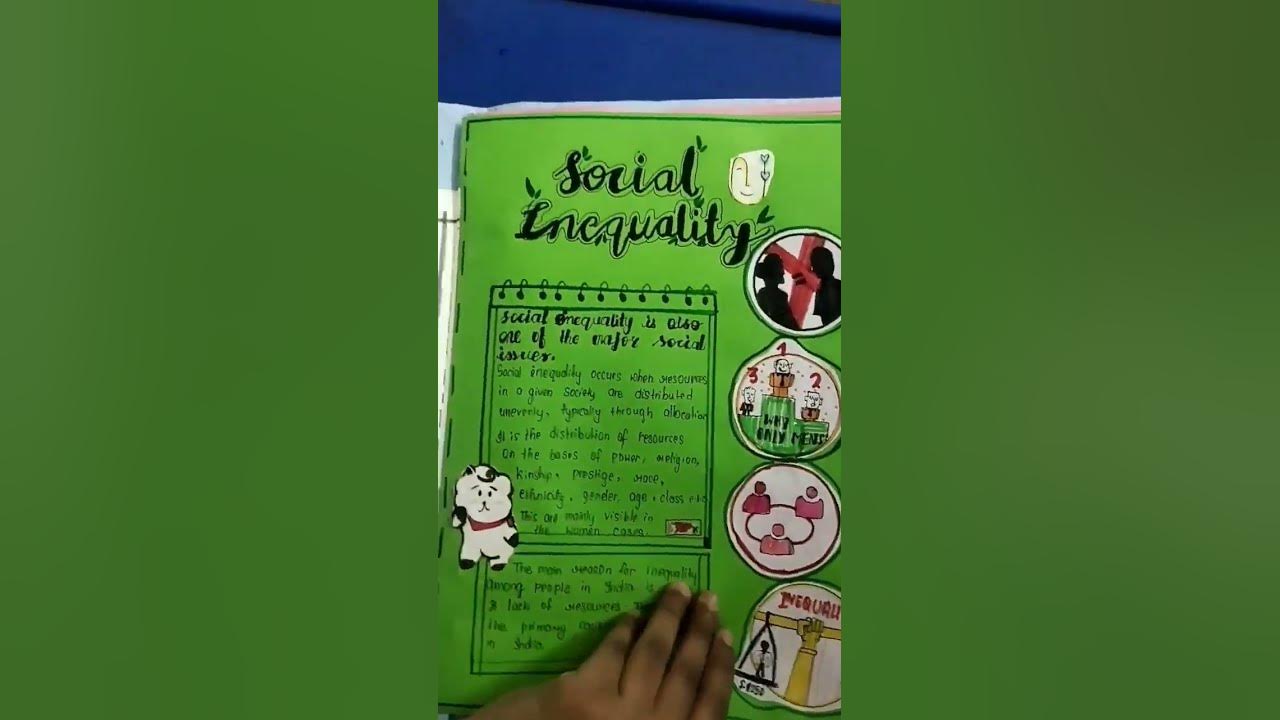 Social
Inequality
Social Inequality is also
one of the major social
issues.
Social inequality occurs when resources
in a given society are distributed
unevenly, typically through allocation
It is the distribution of resources
on the bases of power, religion,
kinship, prestige, race,
ethnicity, gender, age, class etc
This are mainly visible in
the women cases.
The main reason for inequality
among people in India is
& lack of resources
the primary
in India
1
3 2
WHY
ONLY MENS?
INEQUALI